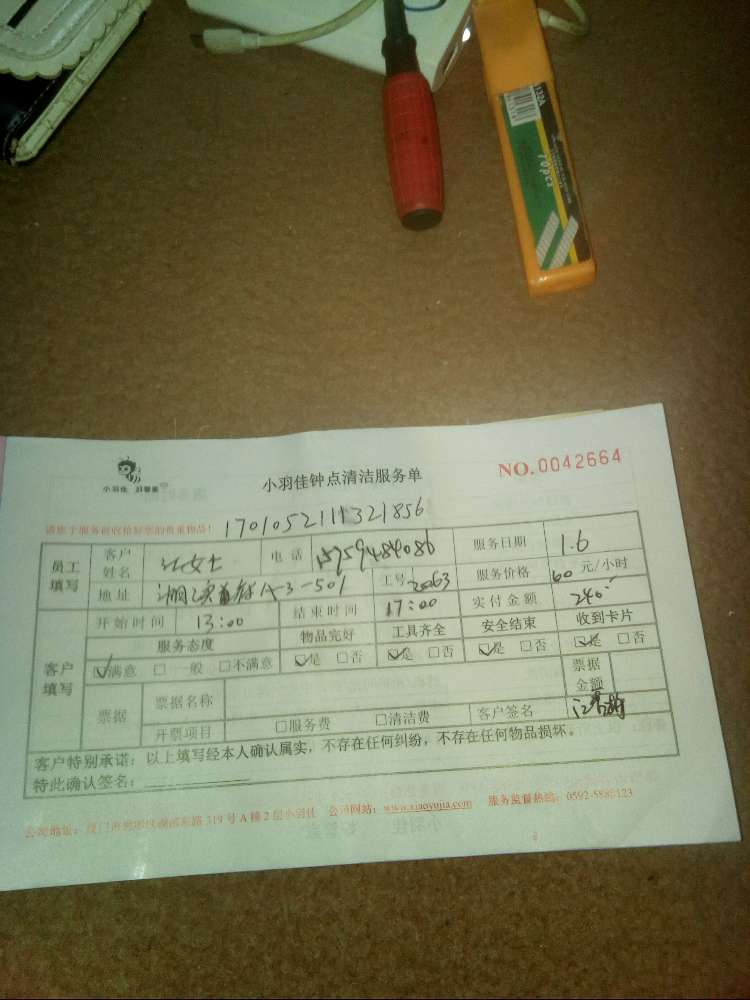 123A
70pcs
小羽佳 好管家
小羽佳钟点清洁服务单
NO.0042664
请您于服务前收拾好您的贵重物品!
1701052111321856
员工填写
客户姓名 江女士 电话 15759484086 服务日期 1.6
地址 A-3-501 工号 2063 服务价格 60 元/小时
开始时间 13:00 结束时间 17:00 实付金额 240
客户填写
服务态度 物品完好 工具齐全 安全结束 收到卡片
☑满意 □一般 □不满意 ☑是 □否 ☑是 □否 ☑是 □否 ☑是 □否
票据 票据名称 票据金额
开票项目 □服务费 □清洁费 客户签名
客户特别承诺:以上填写经本人确认属实,不存在任何纠纷,不存在任何物品损坏。
特此确认签名:
公司地址:厦门市思明区湖滨东路319号A幢2层小羽佳 公司网站:www.xiaoyujia.com 服务监督热线:0592-5882123